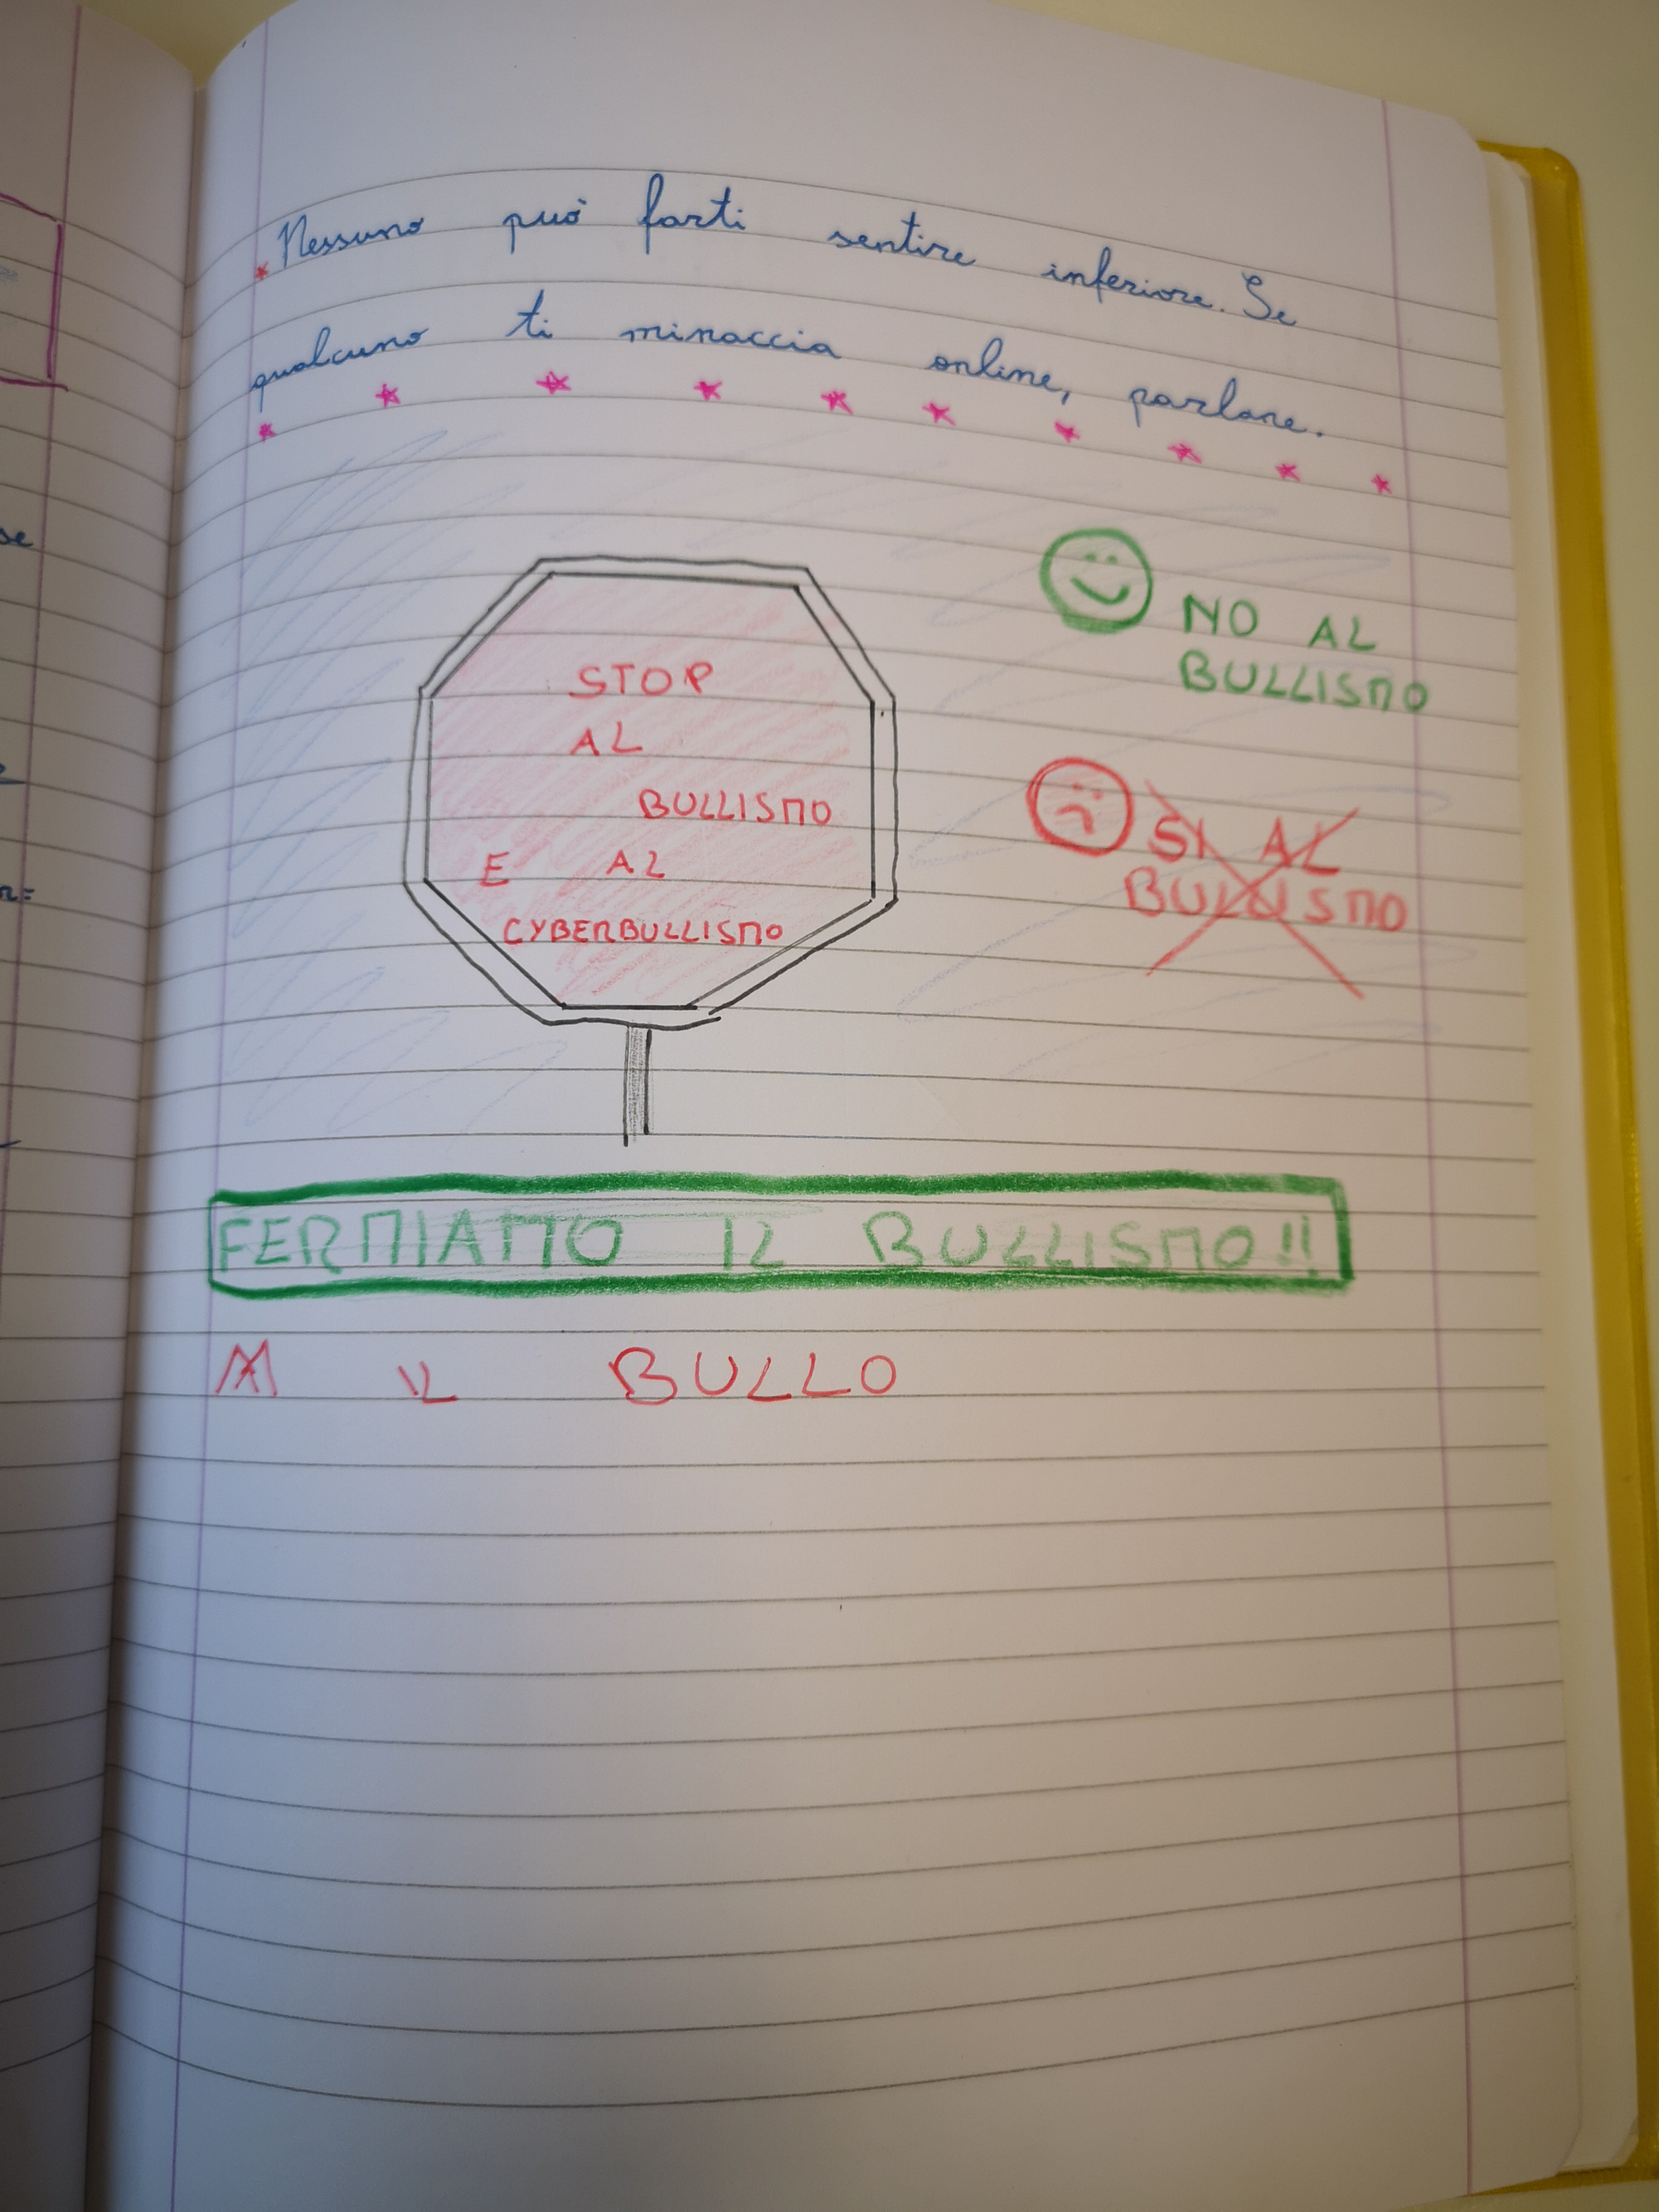 Nessuno può farti sentire inferiore. Se
qualcuno ti minaccia online, parlane.
STOP
AL
BULLISMO
E AL
CYBERBULLISMO
NO AL
BULLISMO
SI AL
BULLISMO
FERMIAMO IL BULLISMO!!
IL BULLO
se